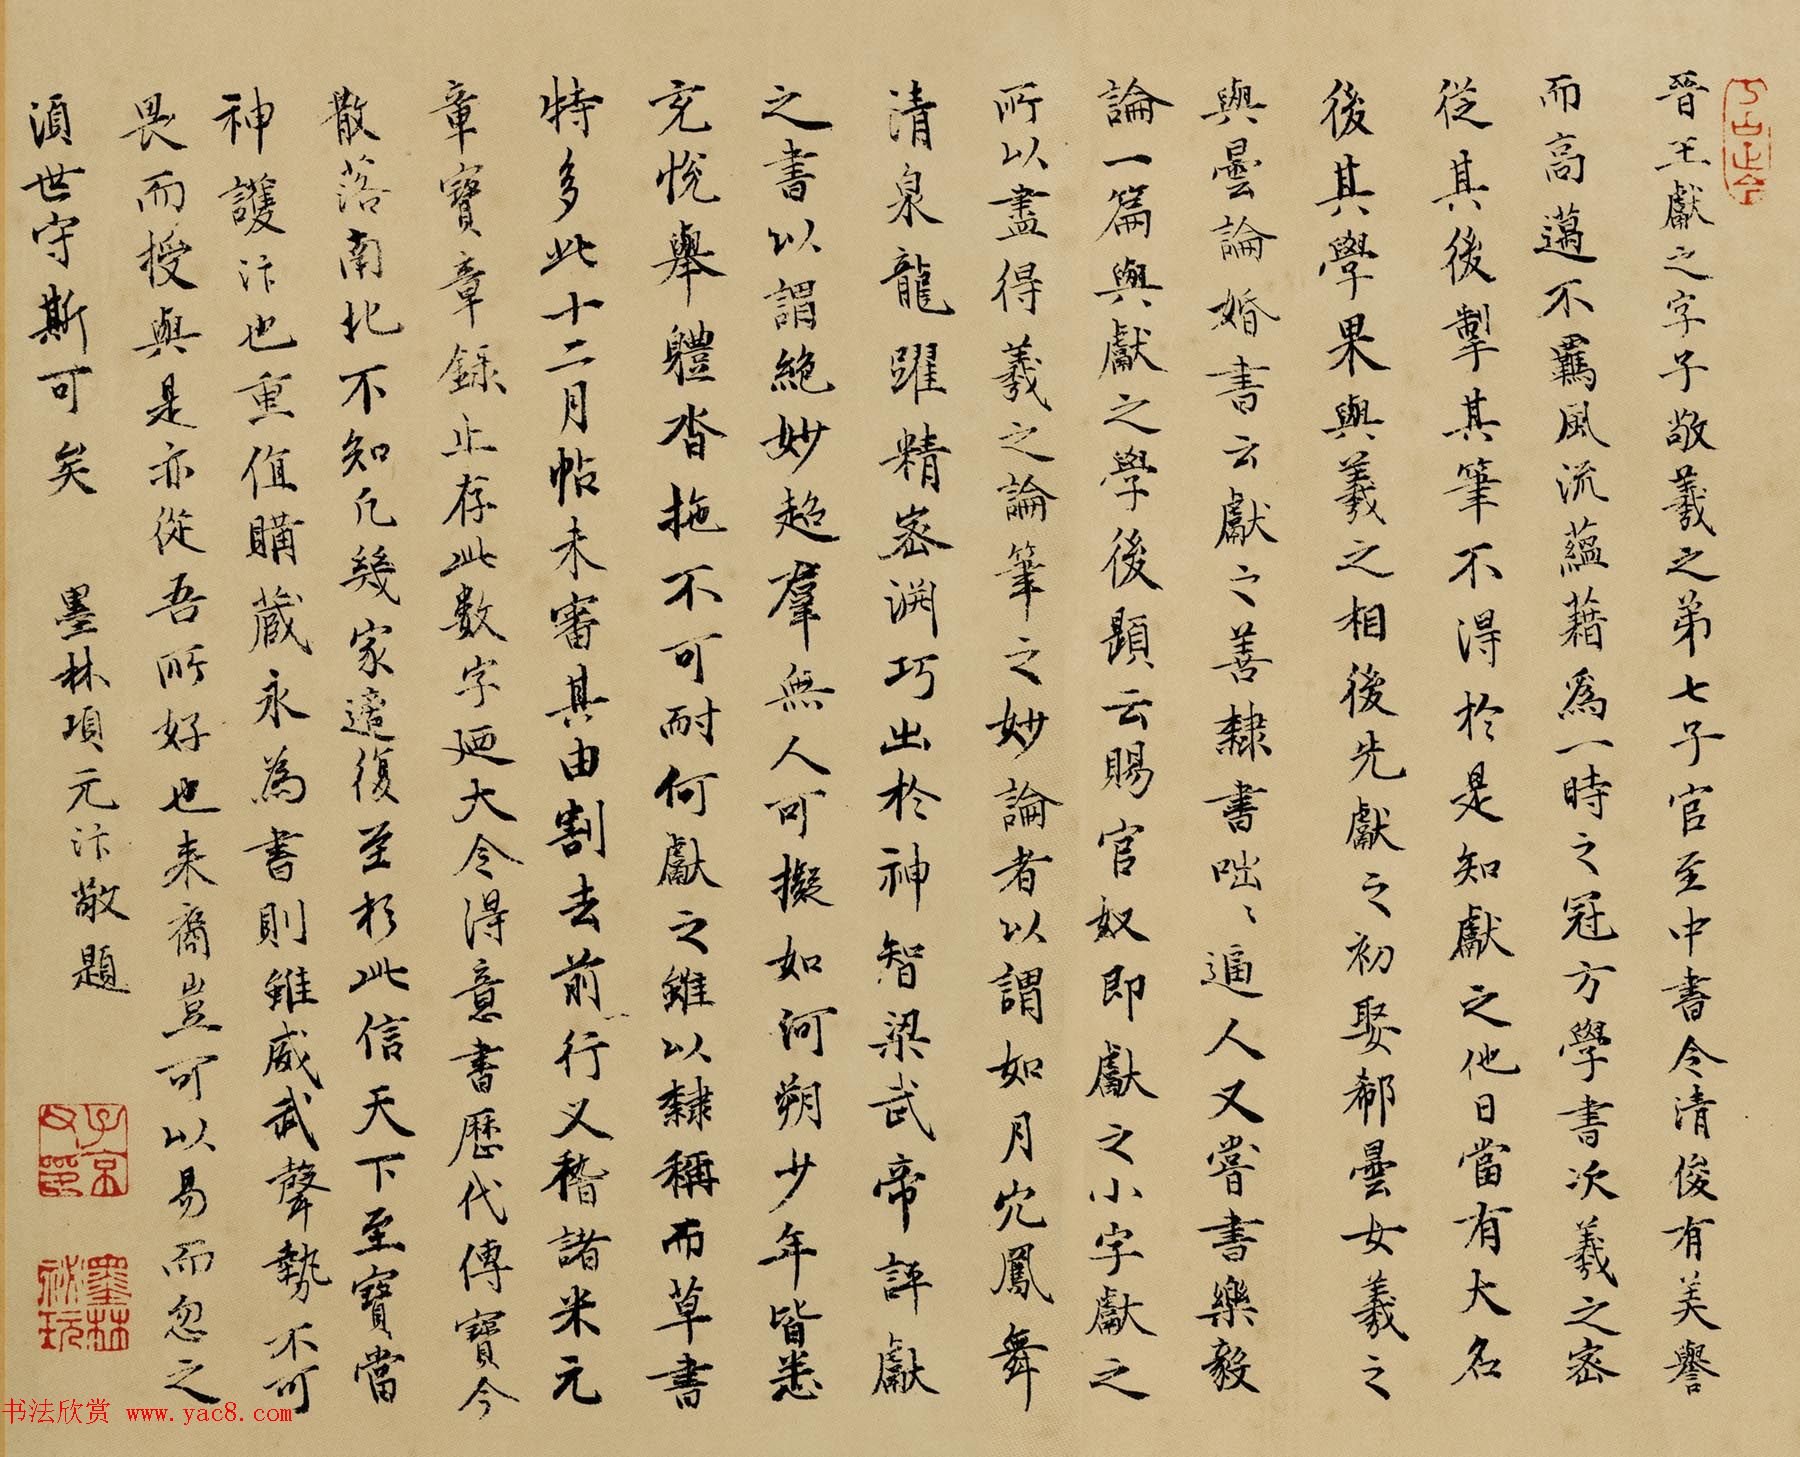 晉王獻之字子敬羲之弟七子官至中書令清俊有美譽
而高邁不羈風流蘊藉為一時之冠方學書次羲之密
從其後掣其筆不得於是知獻之他日當有大名
後其學果與羲之相後先獻之初娶郗曇女羲之
與曇論婚書云獻之善隸書咄〻逼人又嘗書樂毅
論一篇與獻之學後題云賜官奴即獻之小字獻之
所以盡得羲之論筆之妙論者以謂如月穴鳳舞
清泉龍躍精密淵巧出於神智梁武帝評獻
之書以謂絕妙超羣無人可擬如河朔少年皆悉
充悅舉體沓拖不可耐何獻之雖以隸稱而草書
特多此十二月帖未審其由割去前行又稽諸米元
章寶章錄止存此數字廼大令得意書歷代傳寶今
散落南北不知凡幾家遞復至於此信天下至寶當
神護汴也重值購藏永為書則雖威武聲勢不可
畏而授與是亦從吾所好也来裔豈可以易而忽之
須世守斯可矣 墨林項元汴敬題
子京父印
墨林祕玩
书法欣赏 www.yac8.com